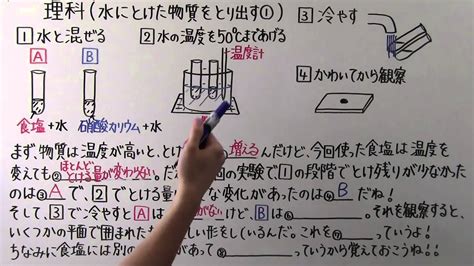 理科(水にとけた物質をとり出す①)
1 水と混ぜる
2 水の温度を50℃まであげる
3 冷やす
温度計
A
B
4 かわいてから観察
食塩+水
硝酸カリウム+水
まず、物質は温度が高いと、とけ 増えるんだけど、今回使った食塩は温度を
変えても② ほとんどとける量が変わらない。 の実験で1の段階でとけ残りが少なかった
のは③ A で、2でとける量 な変化があったのは④ B だね!
そして、3で冷やすとAは がないけど、Bは⑥ 。それを観察すると、
いくつかの平面で囲まれた しい形をしているんだ。これを⑦ っていうよ!
ちなみに食塩には別の っていうから覚えておこうね!!